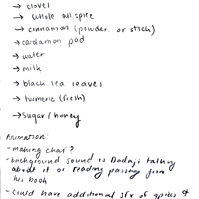 → cloves
→ whole all spice
→ cinnamon (powder or stick)
→ cardamon pod
→ water
→ milk
→ black tea leaves
→ turmeric (fresh)
→ sugar/honey
Animation:
- making chai?
- background sound is Dadaji talking
about it or reading passage from
his book
- could have additional sfx of spices &